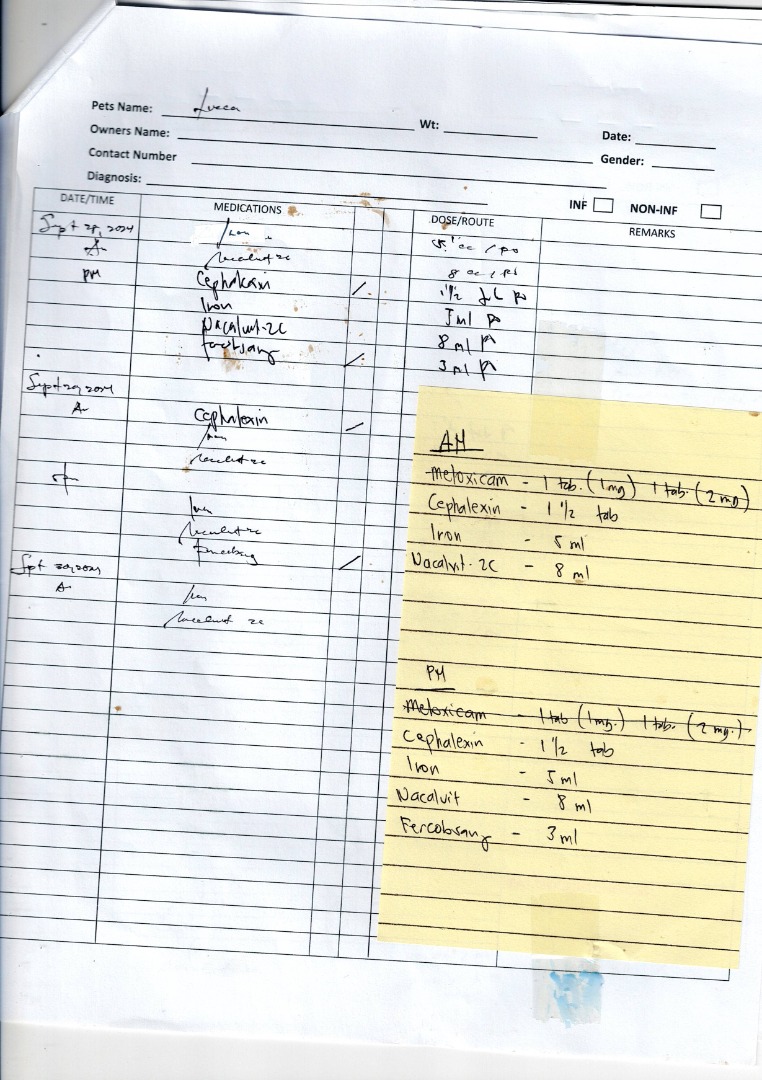 Pets Name: Lucca
Wt:
Date:
Owners Name:
Gender:
Contact Number
Diagnosis:
INF NON-INF
DATE/TIME MEDICATIONS DOSE/ROUTE REMARKS
Sept 28, 2024 Iron 5 cc / po
A Nacalvit-2c 8 cc / po
PM Cephalexin / 1 1/2 po
Iron 5 ml po
Nacalvit-2C 8 ml
Fercobsang / 3 ml
Sept 29, 2024
A Cephalexin /
Iron
Nacalvit 2c
pm
Iron
Nacalvit 2c
Fercobsang /
Sept 30, 2024
A Iron
Nacalvit 2c
AM
Meloxicam - 1 tab. (1mg) 1 tab. (2mg)
Cephalexin - 1 1/2 tab
Iron - 5 ml
Nacalvit-2C - 8 ml
PM
Meloxicam - 1 tab (1mg.) 1 tab. (2mg.)
Cephalexin - 1 1/2 tab
Iron - 5 ml
Nacalvit - 8 ml
Fercobsang - 3 ml